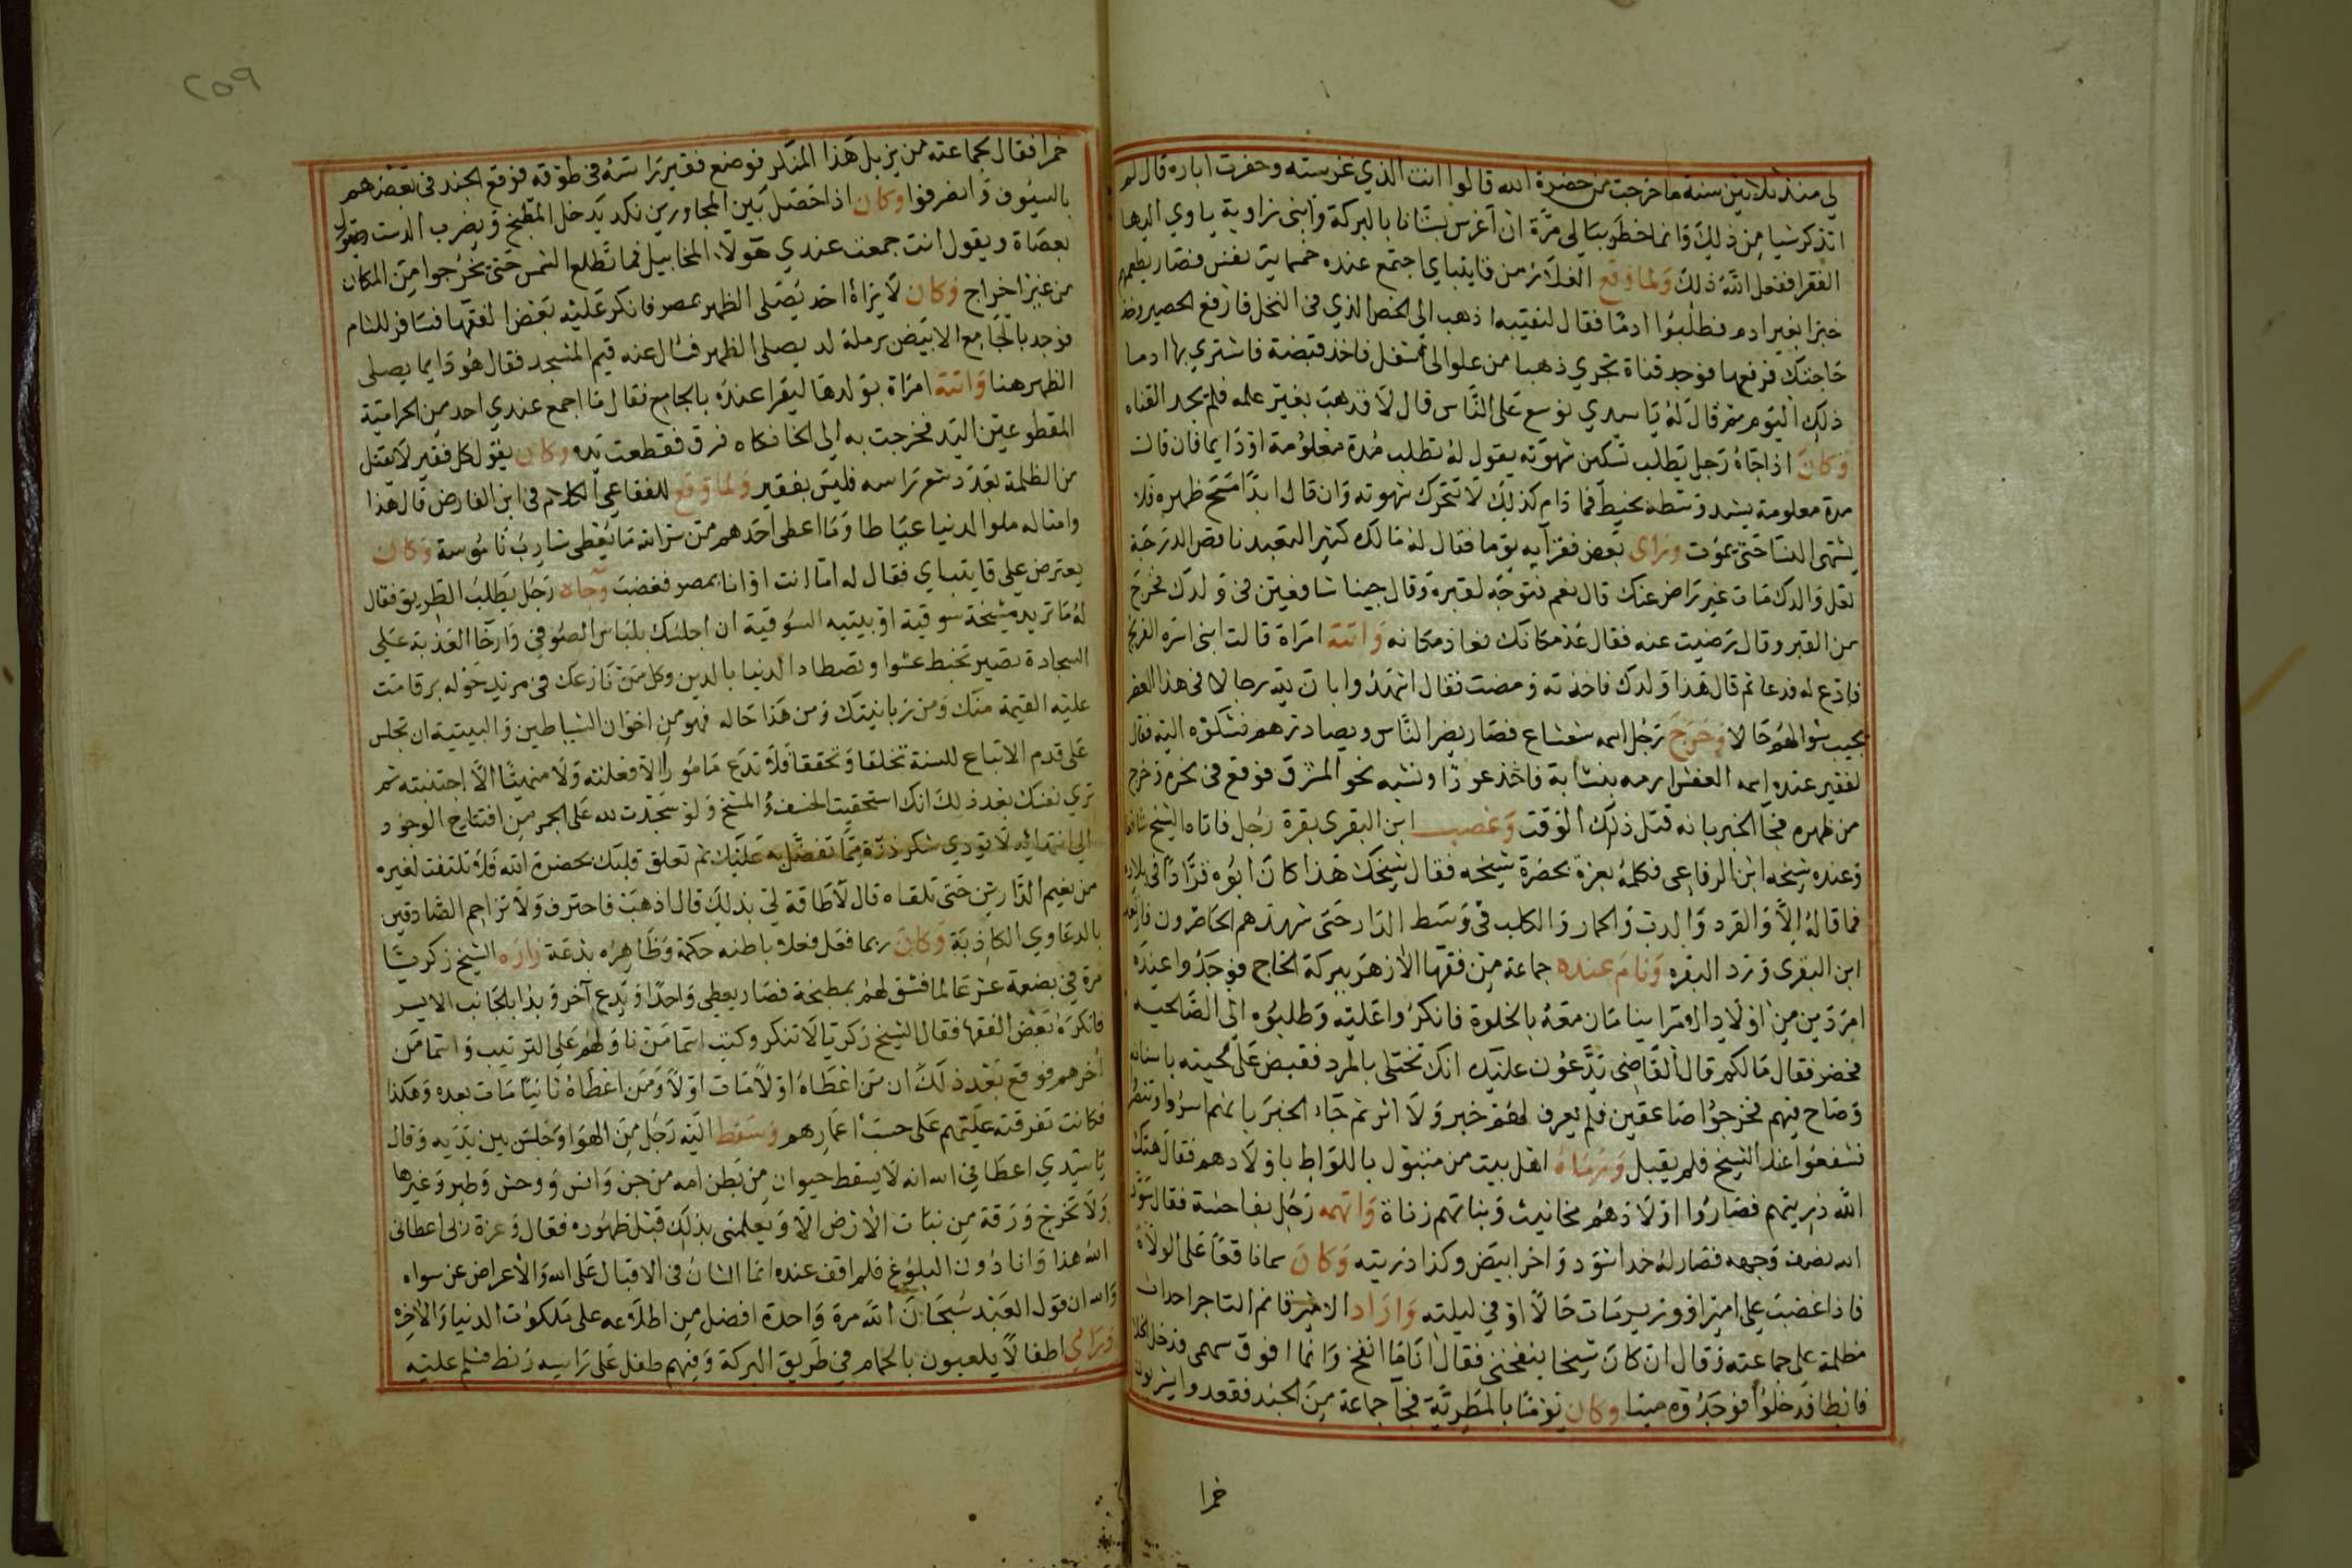 لي منذ ثلاثين سنة ما خرجت من حضرة الله قالوا انت الذي غرسته وحفرت اباره قال لم
اتذكر شيا من ذلك وانما خطر ببالي مرة ان اغرس بستانا بالبركة وابنى زاوية ياوي اليها
الفقرا ففعل الله ذلك ولما وقع الغلا زمن قايتباي اجتمع عنده خمسماية نفس فصار يطعمهم
خبزا بغير ادم فطلبوا ادما فقال لنقيبه اذهب الى الخص الذي في النخل فارفع الحصير وخذ
حاجتك فرفعها فوجد قناة تجري ذهبا من علو الى سفل فاخذ قبضة فاشتري بها ادما
ذلك اليوم ثم قال له يا سيدي نوسع على الناس قال لا فذهب بغير علمه فلم يجد القناه
وكان اذا جاه رجل يطلب تسكين شهوته يقول له تطلب مدة معلومة او دايما فان قال
مدة معلومة يشد وسطه بخيط فما دام كذلك لا تتحرك شهوته وان قال ابدا مسح ظهره فلا
يشتهى النسا حتى يموت وراى بعض فقرايه يوما فقال له مالك كثير التعبد ناقص الدرجة
لعل والدك مات غير راض عنك قال نعم فتوجه لقبره وقال جينا شافعين في ولدك فخرج
من القبر وقال رضيت عنه فقال عد مكانك فعاد مكانه واتته امراة قالت ابنى اسره الفرنج
فادع له فدعا ثم قال هذا ولدك فاخذته ومضت فقال اشهدوا بان لله رجالا في هذا العصر
يجيب سوالهم حالا وخرج رجل اسمه شعشاع فصار يضر الناس ويصادرهم فشكوه اليه فقال
لفقير عنده اسمه العفش ارمه بنشابة فاخذ عودا ونشبه نحو المشرق فوقع في نحره وخرج
من ظهره فجا الخبر بانه قتل ذلك الوقت وغصب ابن البقرى بقرة رجل فاتاه الشيخ شافعا
وعنده شيخه ابن الرفاعى فكلمه بعزة بحضرة شيخه فقال شيخك هذا كان ابوه قرادا في بلاده
فما قاله الا والقرد والدب والحمار والكلب في وسط الدار حتى شهدهم الحاضرون فارتعد
ابن البقرى ورد البقره ونام عنده جماعة من فقها الازهر ببركة الحاج فوجدوا عنده
امردين من اولاد الامرا ينامان معه بالخلوة فانكروا عليه وطلبوه الى الصالحيه
فحضر فقال مالكم قال القاضى يدعون عليك انك تختلى بالمرد فقبض على لحيته باسنانه
وصاح فيهم فخرجوا صاعقين فلم يعرف لهم خبر ولا اثر ثم جاء الخبر بانهم اسروا وتنصروا
فشفعوا عند الشيخ فلم يقبل ورماه اهل بيت من منبول باللواط باولادهم فقال هتك
الله ذريتهم فصاروا اولادهم مخانيث وبناتهم زناة واتهمه رجل بفاحشة فقال سود
الله نصف وجهه فصار له خد اسود واخر ابيض وكذا ذريته وكان سما ناقعا على الولاة
فاذا غضب على امير او وزير مات حالا او في ليلته واراد الامير قانم التاجر احداث
مظلمة على جماعته وقال ان كان شيخا ينفخني فقال انا ما انفخ وانما افوق سهمى فدخل الخلا
فابطا فدخلوا فوجدوه ميتا وكان يوما بالمطرية فجا جماعة من الجند فقعدوا يشربون
خمرا
٢٥٩
خمرا فقال لجماعته من يزيل هذا المنكر فوضع فقير راسه في طوقه فوقع الجند في بعضهم
بالسيوف وانصرفوا وكان اذا حصل بين المجاورين نكد يدخل المطبخ ويضرب الدست ويقول
بعصاة ويقول انت جمعت عندي هولاء المخابيل فما تطلع الشمس حتى يخرجوا من المكان
من غير اخراج وكان لا يراه احد يصلى الظهر بمصر فانكر عليه بعض الفقها فسافر للشام
فوجد بالجامع الابيض برملة لد يصلى الظهر فسال عنه قيم المسجد فقال هو دايما يصلى
الظهر هنا واتته امراة بولدها ليقرا عنده بالجامع فقال ما اجمع عندي احد من الحرامية
المقطوعين اليد فخرجت به الى الخانكاه فرق فقطعت يده وكان يقول كل فقير لا يقتل
من الظلمة بعدد شعر راسه فليس بفقير ولما وقع للبقاعي الكلام في ابن الفارض قال هذا
وامثاله ملوا الدنيا عياطا وما اعطى احدهم من سر الله ما يغطى شارب ناموسة وكان
يعترض على قايتباي فقال له اما انت او انا بمصر فغضب وجاه رجل يطلب الطريق فقال
له ما تريد مشيخة سوقية او بيتيه السوقية ان اجلسك بلباس الصوف وارخا العذبة على
السجادة تصير تخبط عشوا وتصطاد الدنيا بالدين وكل من نازعك في مريد حوله برقامت
عليه القيمة منك ومن زبانيتك ومن هذا حاله فهو من اخوان الشياطين والبيتية ان تجلس
على قدم الاتباع للسنة تخلقا وتحققا فلا تدع مامورا الا فعلته ولا منهيا الا اجتنبته ثم
تري نفسك بعد ذلك انك استحقيت الخسف والمسخ ولو سجدت لله على الجمر من افتتاح الوجود
الى انتهائه لا تودي شكر ذرة مما تفضل به عليك ثم تعلق قلبك بحضرة الله فلا تلتفت لغيره
من نعيم الدارين حتى تلقاه قال لا طاقة لي بذلك قال اذهب فاحترف ولا تزاحم الصادقين
بالدعاوي الكاذبة وكان ربما فعل فعلا باطنه حكمة وظاهره بدعة زاره الشيخ زكريا
مرة في بضعة عشر عالما فشق لهم بطيخة فصار يعطي واحدا ويدع آخر وبدا بالجانب الايسر
فانكره بعض الفقها فقال الشيخ زكريا لا تنكر وكتب اسما من ناولهم على الترتيب واسما من
أخرهم فوقع بعد ذلك ان من اعطاه اولا مات اولا ومن اعطاه ثانيا مات بعده وهكذا
فكانت تفرقته عليهم على حسب اعمارهم وسقط اليه رجل من الهوا وجلس بين يديه وقال
يا سيدي اعطاني الله انه لا يسقط حيوان من بطن امه من جن وانس ووحش وطير وغيرها
ولا تخرج ورقة من نبات الارض الا ويعلمنى بذلك قبل ظهوره فقال وعزة ربى اعطانى
الله هذا وانا دون البلوغ فلم اقف عنده انما الشان في الاقبال على الله والاعراض عن سواه
والله ان قول العبد سبحان الله مرة واحدة افضل من اطلاعه على ملكوت الدنيا والاخره
وراى اطفالا يلعبون بالحمام في طريق البركة وفيهم طفل على راسه زنط فسلم عليه